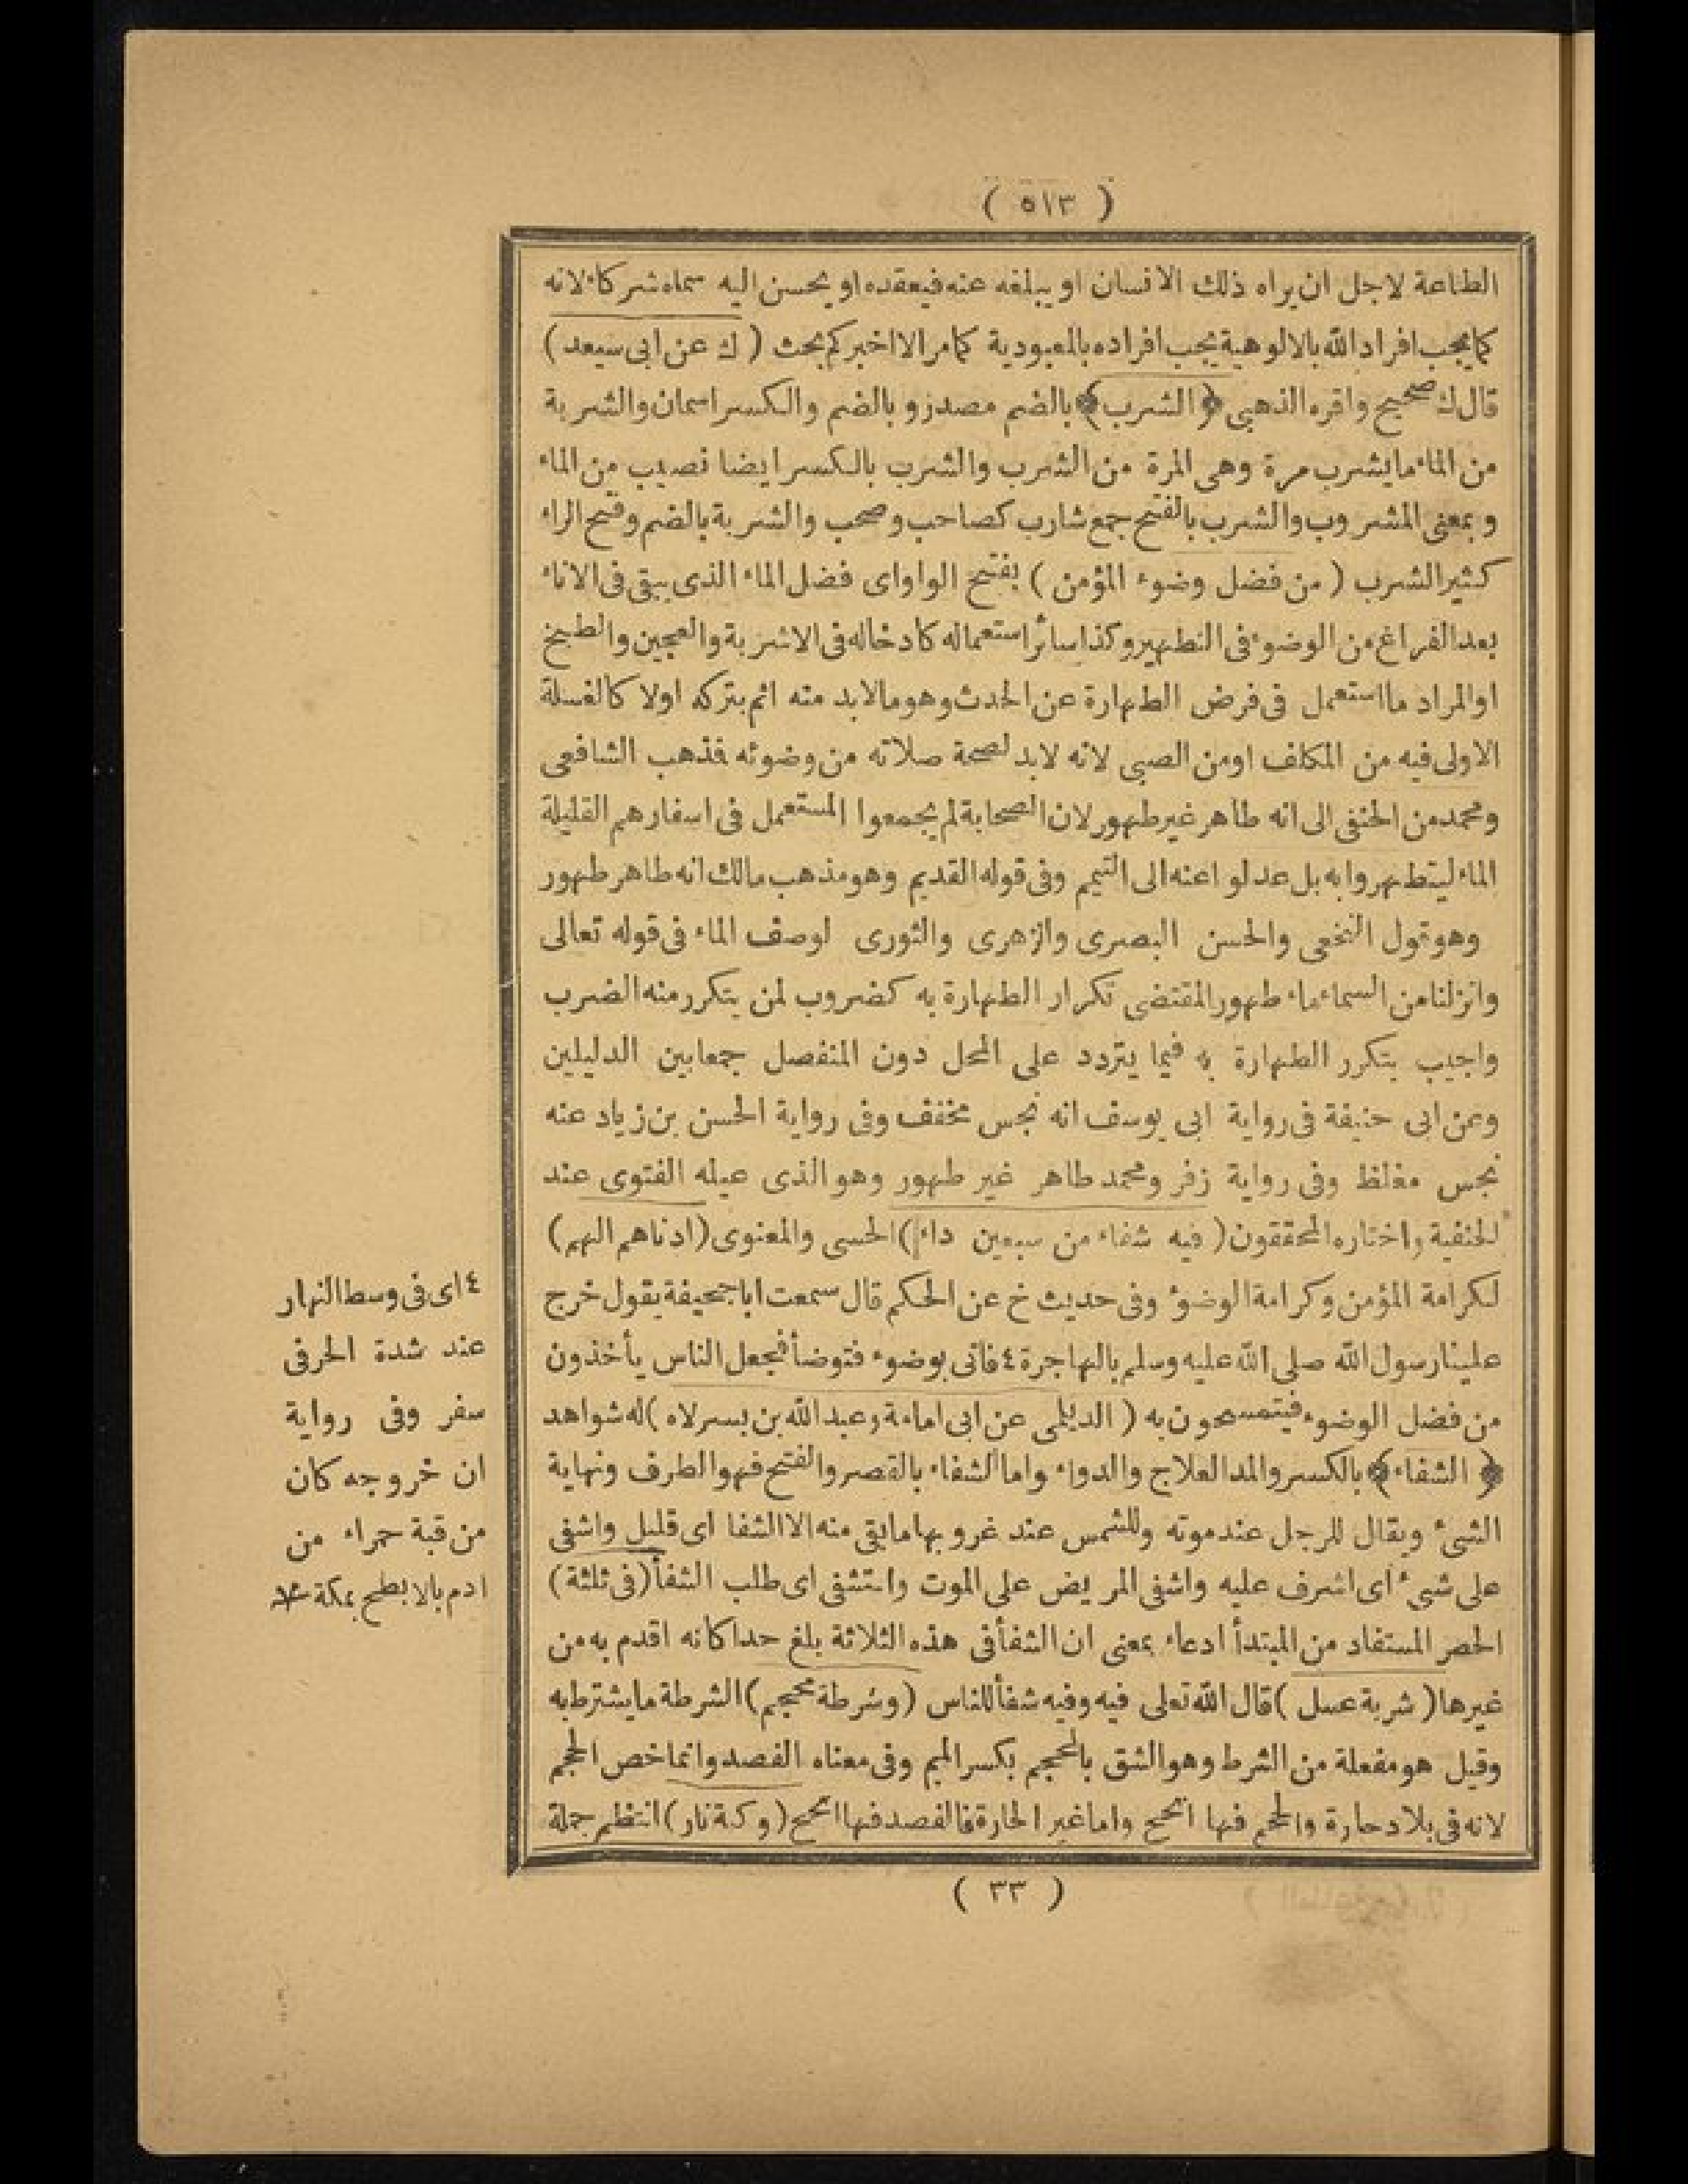 ( ٥١٣ )
الطاعة لاجل ان يراه ذلك الانسان او يبلغه عنه فيعقده او يحسن اليه سماه شركا لانه
كما يجب افراد الله بالالوهية يجب افراده بالمعبودية كما مر الا اخبركم بحث ( ك عن ابى سيعد )
قال ك صحيح واقره الذهبى ﴿ الشرب ﴾ بالضم مصدر و بالضم والكسر اسمان والشربة
من الماء ما يشرب مرة وهى المرة من الشرب والشرب بالكسر ايضا نصيب من الماء
وبمعنى المشروب والشرب بالفتح جمع شارب كصاحب وصحب والشربة بالضم وفتح الراء
كثير الشرب ( من فضل وضوء المؤمن ) بفتح الواو اى فضل الماء الذى يبقى فى الاناء
بعد الفراغ من الوضوء فى التطهير وكذا سائر استعماله كادخاله فى الاشربة والعجين والطبخ
او المراد ما استعمل فى فرض الطهارة عن الحدث وهو مالابد منه اثم بتركه اولا كالغسلة
الاولى فيه من المكلف اومن الصبى لانه لابد لصحة صلاته من وضوئه فذهب الشافعى
ومحمد من الحنفى الى انه طاهر غير طهور لان الصحابة لم يجمعوا المستعمل فى اسفارهم القليلة
الماء ليتطهروا به بل عدلوا عنه الى التيمم وفى قوله القديم وهو مذهب مالك انه طاهر طهور
وهو قول النخعى والحسن البصرى والزهرى والثورى لوصف الماء فى قوله تعالى
وانزلنا من السماء ماء طهور المقتضى تكرار الطهارة به كضروب لمن يتكرر منه الضرب
واجيب بتكرر الطهارة به فيما يتردد على المحل دون المنفصل جمعا بين الدليلين
وعن ابى حنيفة فى رواية ابى يوسف انه نجس مخفف وفى رواية الحسن بن زياد عنه
نجس مغلظ وفى رواية زفر ومحمد طاهر غير طهور وهو الذى عيله الفتوى عند
الحنفية واختاره المحققون ( فيه شفاء من سبعين داء ) الحسى والمعنوى ( ادناهم الهم )
لكرامة المؤمن وكرامة الوضوء وفى حديث خ عن الحكم قال سمعت ابا جحيفة يقول خرج
علينا رسول الله صلى الله عليه وسلم بالهاجرة ٤ فاتى بوضوء فتوضأ فجعل الناس يأخذون
من فضل الوضوء فيتمسحون به ( الديلمى عن ابى امامة وعبد الله بن بسر لاه ) له شواهد
﴿ الشفاء ﴾ بالكسر والمد العلاج والدواء واما الشفاء بالقصر والفتح فهو الطرف ونهاية
الشئ ويقال للرجل عند موته وللشمس عند غروبها ما بقى منه الا الشفا اى قليل واشفى
على شئ اى اشرف عليه واشفى المريض على الموت واستشفى اى طلب الشفأ ( فى ثلثة )
الحصر المستفاد من المبتدأ ادعاء بمعنى ان الشفأ فى هذه الثلاثة بلغ حدا كانه اقدم به من
غيرها ( شربة عسل ) قال الله تعلى فيه وفيه شفأ للناس ( وشرطة محجم ) الشرطة ما يشترط به
وقيل هو مفعلة من الشرط وهو الشق بالمحجم بكسر الميم وفى معناه الفصد وانما خص الحجم
لانه فى بلاد حارة والحجم فيها انجح واما غير الحارة فالفصد فيها انجح ( وكية نار ) انتظم جملة
( ٣٣ )
٤ اى فى وسط النهار
عند شدة الحر فى
سفر وفى رواية
ان خروجه كان
من قبة حمراء من
ادم بالابطح بمكة